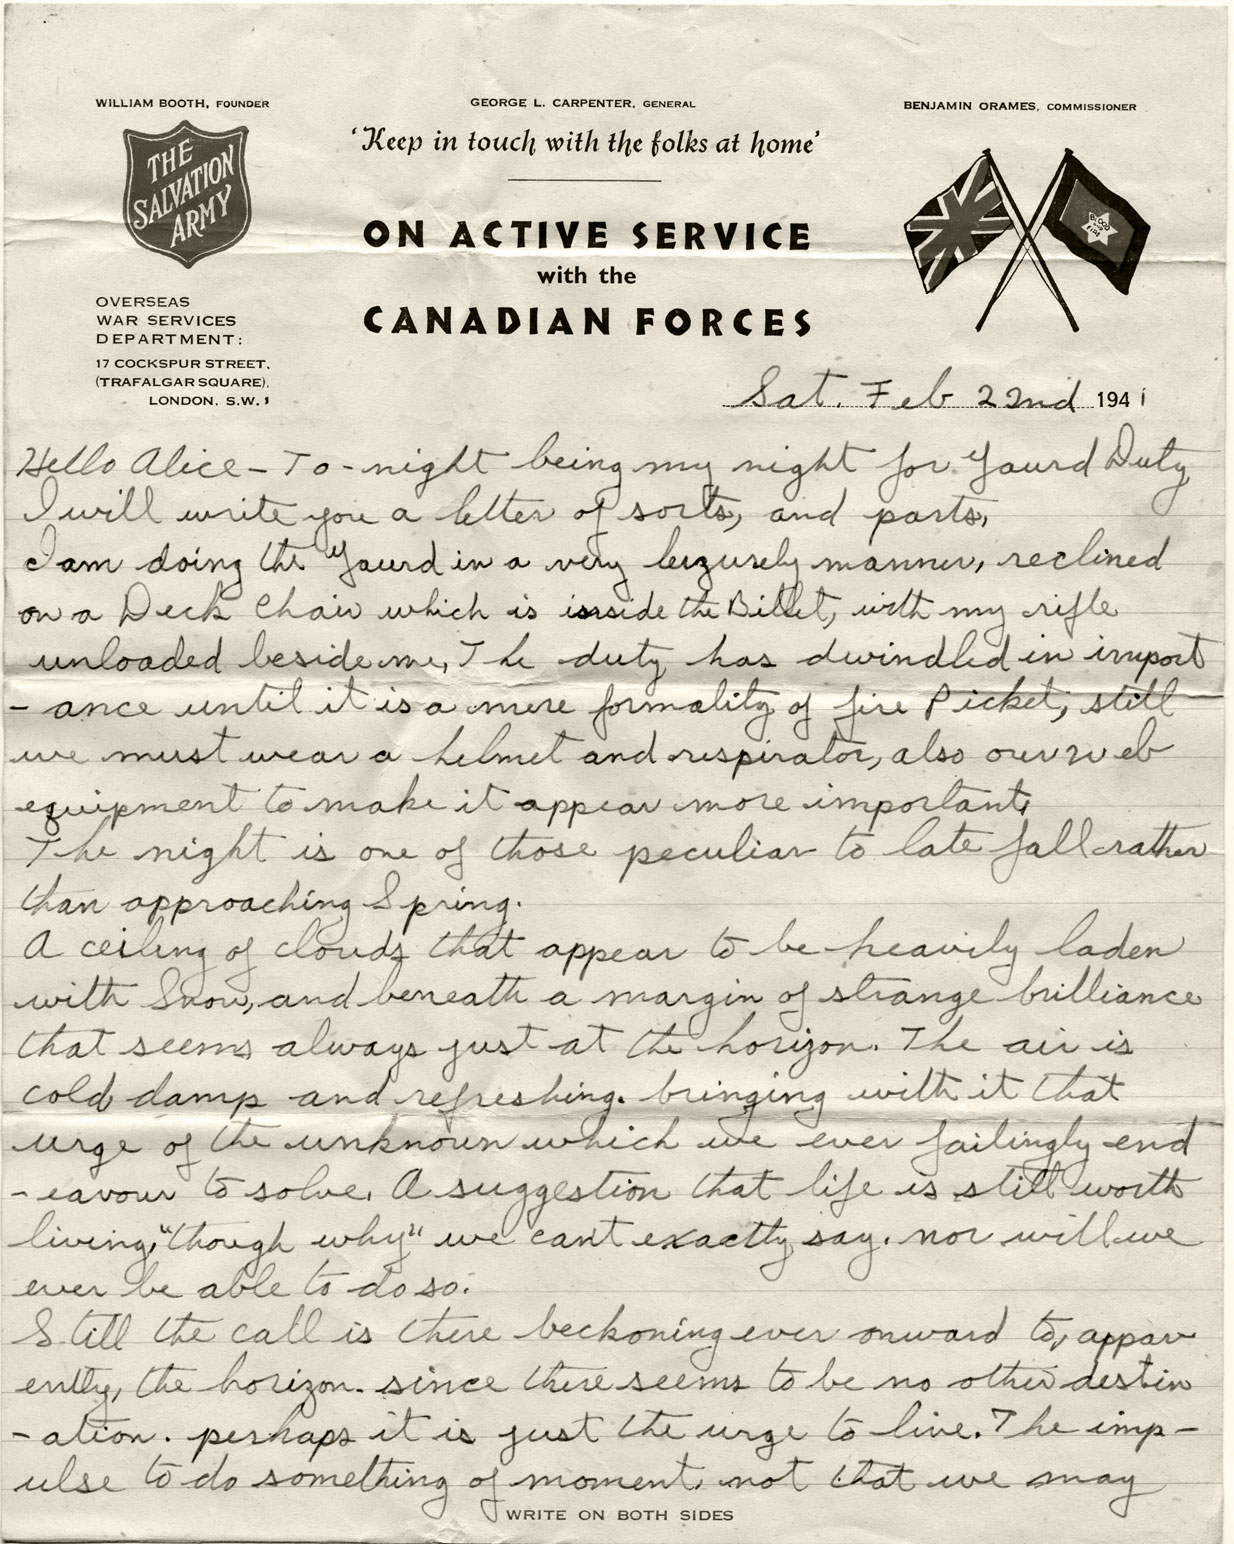 WILLIAM BOOTH, FOUNDER
GEORGE L. CARPENTER, GENERAL
BENJAMIN ORAMES, COMMISSIONER
THE
SALVATION
ARMY
'Keep in touch with the folks at home'
BLOOD
AND
FIRE
ON ACTIVE SERVICE
with the
CANADIAN FORCES
OVERSEAS
WAR SERVICES
DEPARTMENT:
17 COCKSPUR STREET,
(TRAFALGAR SQUARE),
LONDON, S.W.1
Sat. Feb 22nd 1941
Hello Alice – To-night being my night for Gaurd Duty
I will write you a letter of sorts, and parts,
I am doing the Gaurd in a very leizurely manner, reclined
on a Deck Chair which is inside the Billet, with my rifle
unloaded beside me, The duty has dwindled in import
- ance until it is a mere formality of fire Picket, still
we must wear a helmet and respirator, also our web
equipment to make it appear more important,
The night is one of those peculiar to late fall rather
than approaching Spring.
A ceiling of clouds that appear to be heavily laden
with Snow, and beneath a margin of strange brilliance
that seems always just at the horizon. The air is
cold damp and refreshing. bringing with it that
urge of the unknown which we ever failingly end
- eavour to solve. A suggestion that life is still worth
living, "though why" we can't exactly say. nor will we
ever be able to do so.
Still the call is there beckoning ever onward to, appar
ently, the horizon. since there seems to be no other destin
- ation. perhaps it is just the urge to live. The imp -
ulse to do something of moment, not that we may
WRITE ON BOTH SIDES